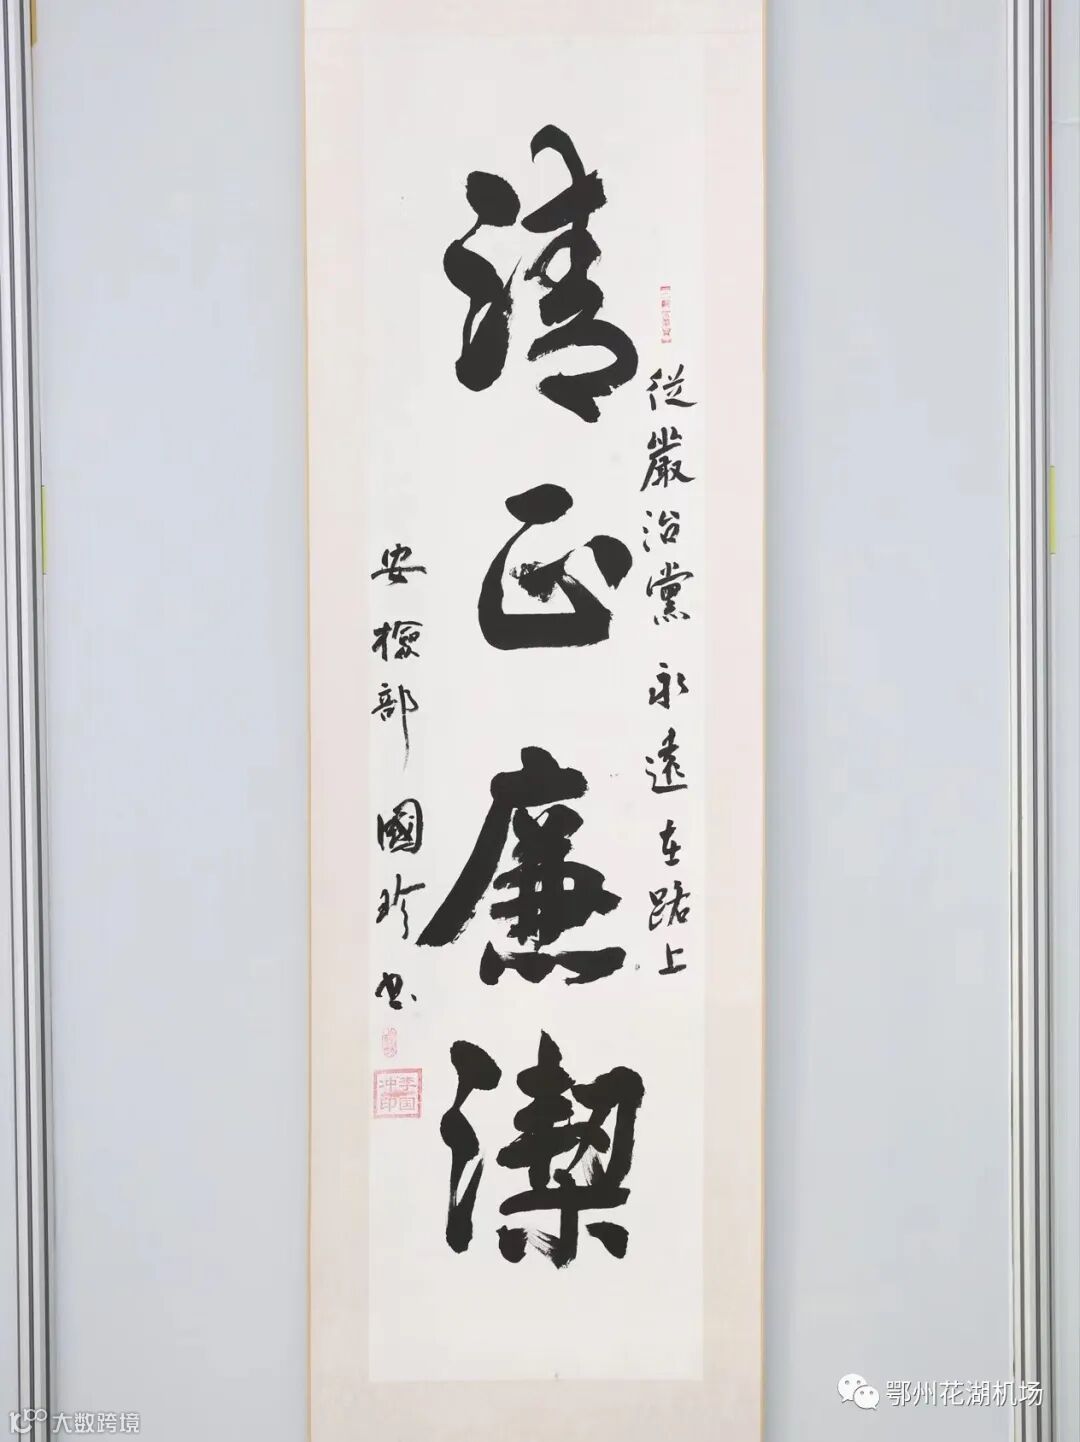 從嚴治黨 永遠在路上
清正廉潔
安檢部 國珍書
李国冲印
鄂州花湖机场
大数跨境